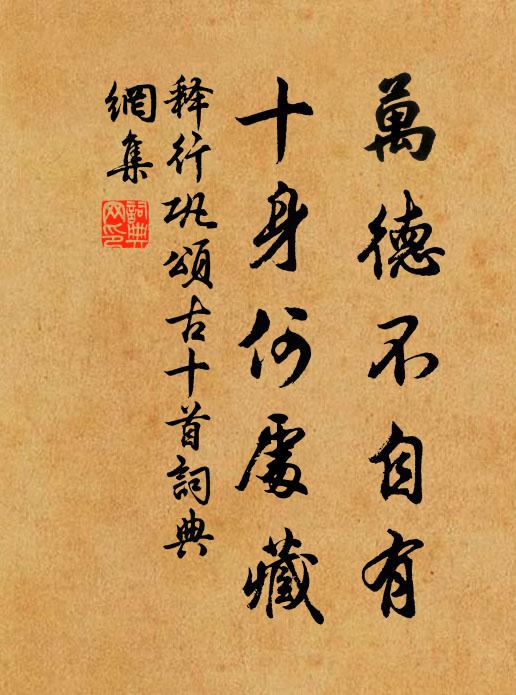 萬德不自有
十身何處藏
释行巩頌古十首詞典
網集
詞典
网印